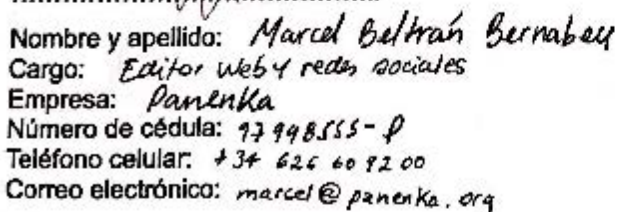 Nombre y apellido: Marcel Beltrán Bernabeu
Cargo: Editor web y redes sociales
Empresa: Panenka
Número de cédula:
Teléfono celular: +34 626 60 92 00
Correo electrónico: marcel@panenka.org